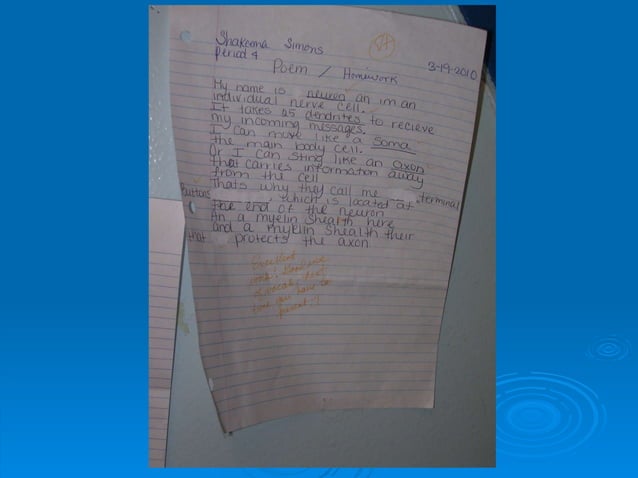 Shakeema Simons
period 4
3-19-2010
Poem / Homework
My name is neuron an im an
individual nerve cell.
It takes 25 dendrites to recieve
my incoming messages.
I can move like a soma
the main body cell.
Or I can sting like an axon
that carries information away
from the cell
Thats why they call me terminal
buttons, which is located at
The end of the neuron
An a myelin shealth here
and a myelin shealth their
that protects the axon.
Excellent
work! Good use
of vocab
you have to